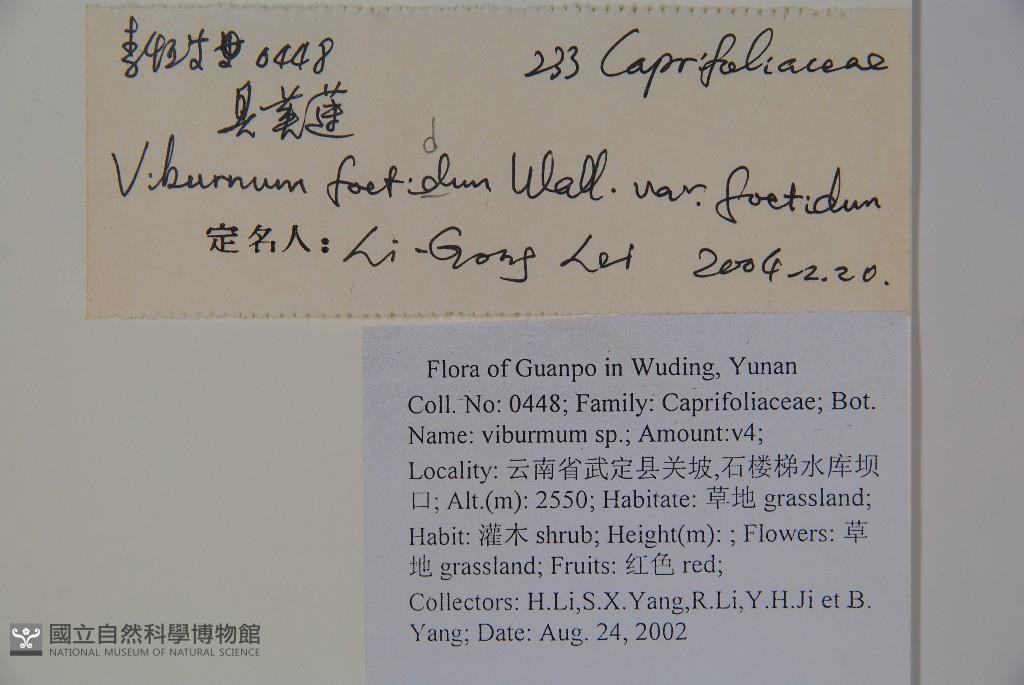 0448
233 Caprifoliaceae
臭荚蓬
d
Viburnum foetidun Wall. var. foetidun
定名人: Li-Gong Lei 2004-2.20.
Flora of Guanpo in Wuding, Yunan
Coll. No: 0448; Family: Caprifoliaceae; Bot.
Name: viburmum sp.; Amount:v4;
Locality: 云南省武定县关坡,石楼梯水库坝
口; Alt.(m): 2550; Habitate: 草地 grassland;
Habit: 灌木 shrub; Height(m): ; Flowers: 草
地 grassland; Fruits: 红色 red;
Collectors: H.Li,S.X.Yang,R.Li,Y.H.Ji et B.
Yang; Date: Aug. 24, 2002
國立自然科學博物館
NATIONAL MUSEUM OF NATURAL SCIENCE